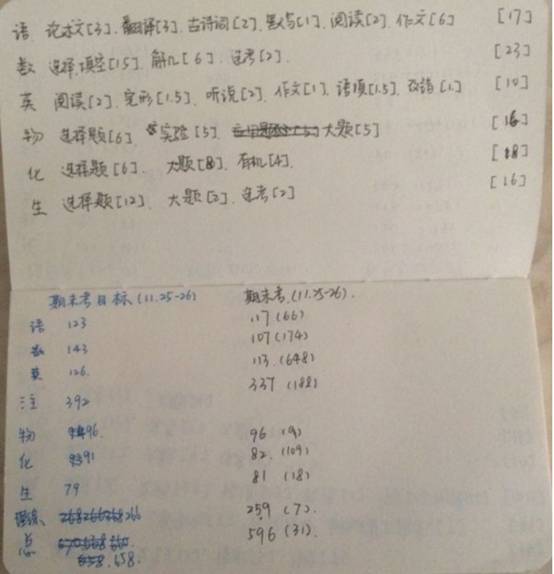 语 论述文[3]. 翻译[3]. 古诗词[2]. 默写[1]. 阅读[2]. 作文[6] [17]
数 选择填空[15]. 解几[6]. 选考[2]. [23]
英 阅读[2]. 完形[1.5]. 听说[2]. 作文[1]. 语填[1.5]. 改错[2.] [10]
物 选择题[6]. 实验[5]. 大题[5] [16]
化 选择题[6]. 大题[8]. 有机[4]. [18]
生 选择题[12]. 大题[2]. 选考[2] [16]
期末考目标.(11.25-26) 期末考.(11.25-26).
语 123 117(66)
数 143 107(174)
英 126. 113.(648)
注 392 337 (188)
物 96. 96 (9)
化 91 82. (109)
生 79 81 (18)
理综. 266 259 (7).
总 658. 596 (31).